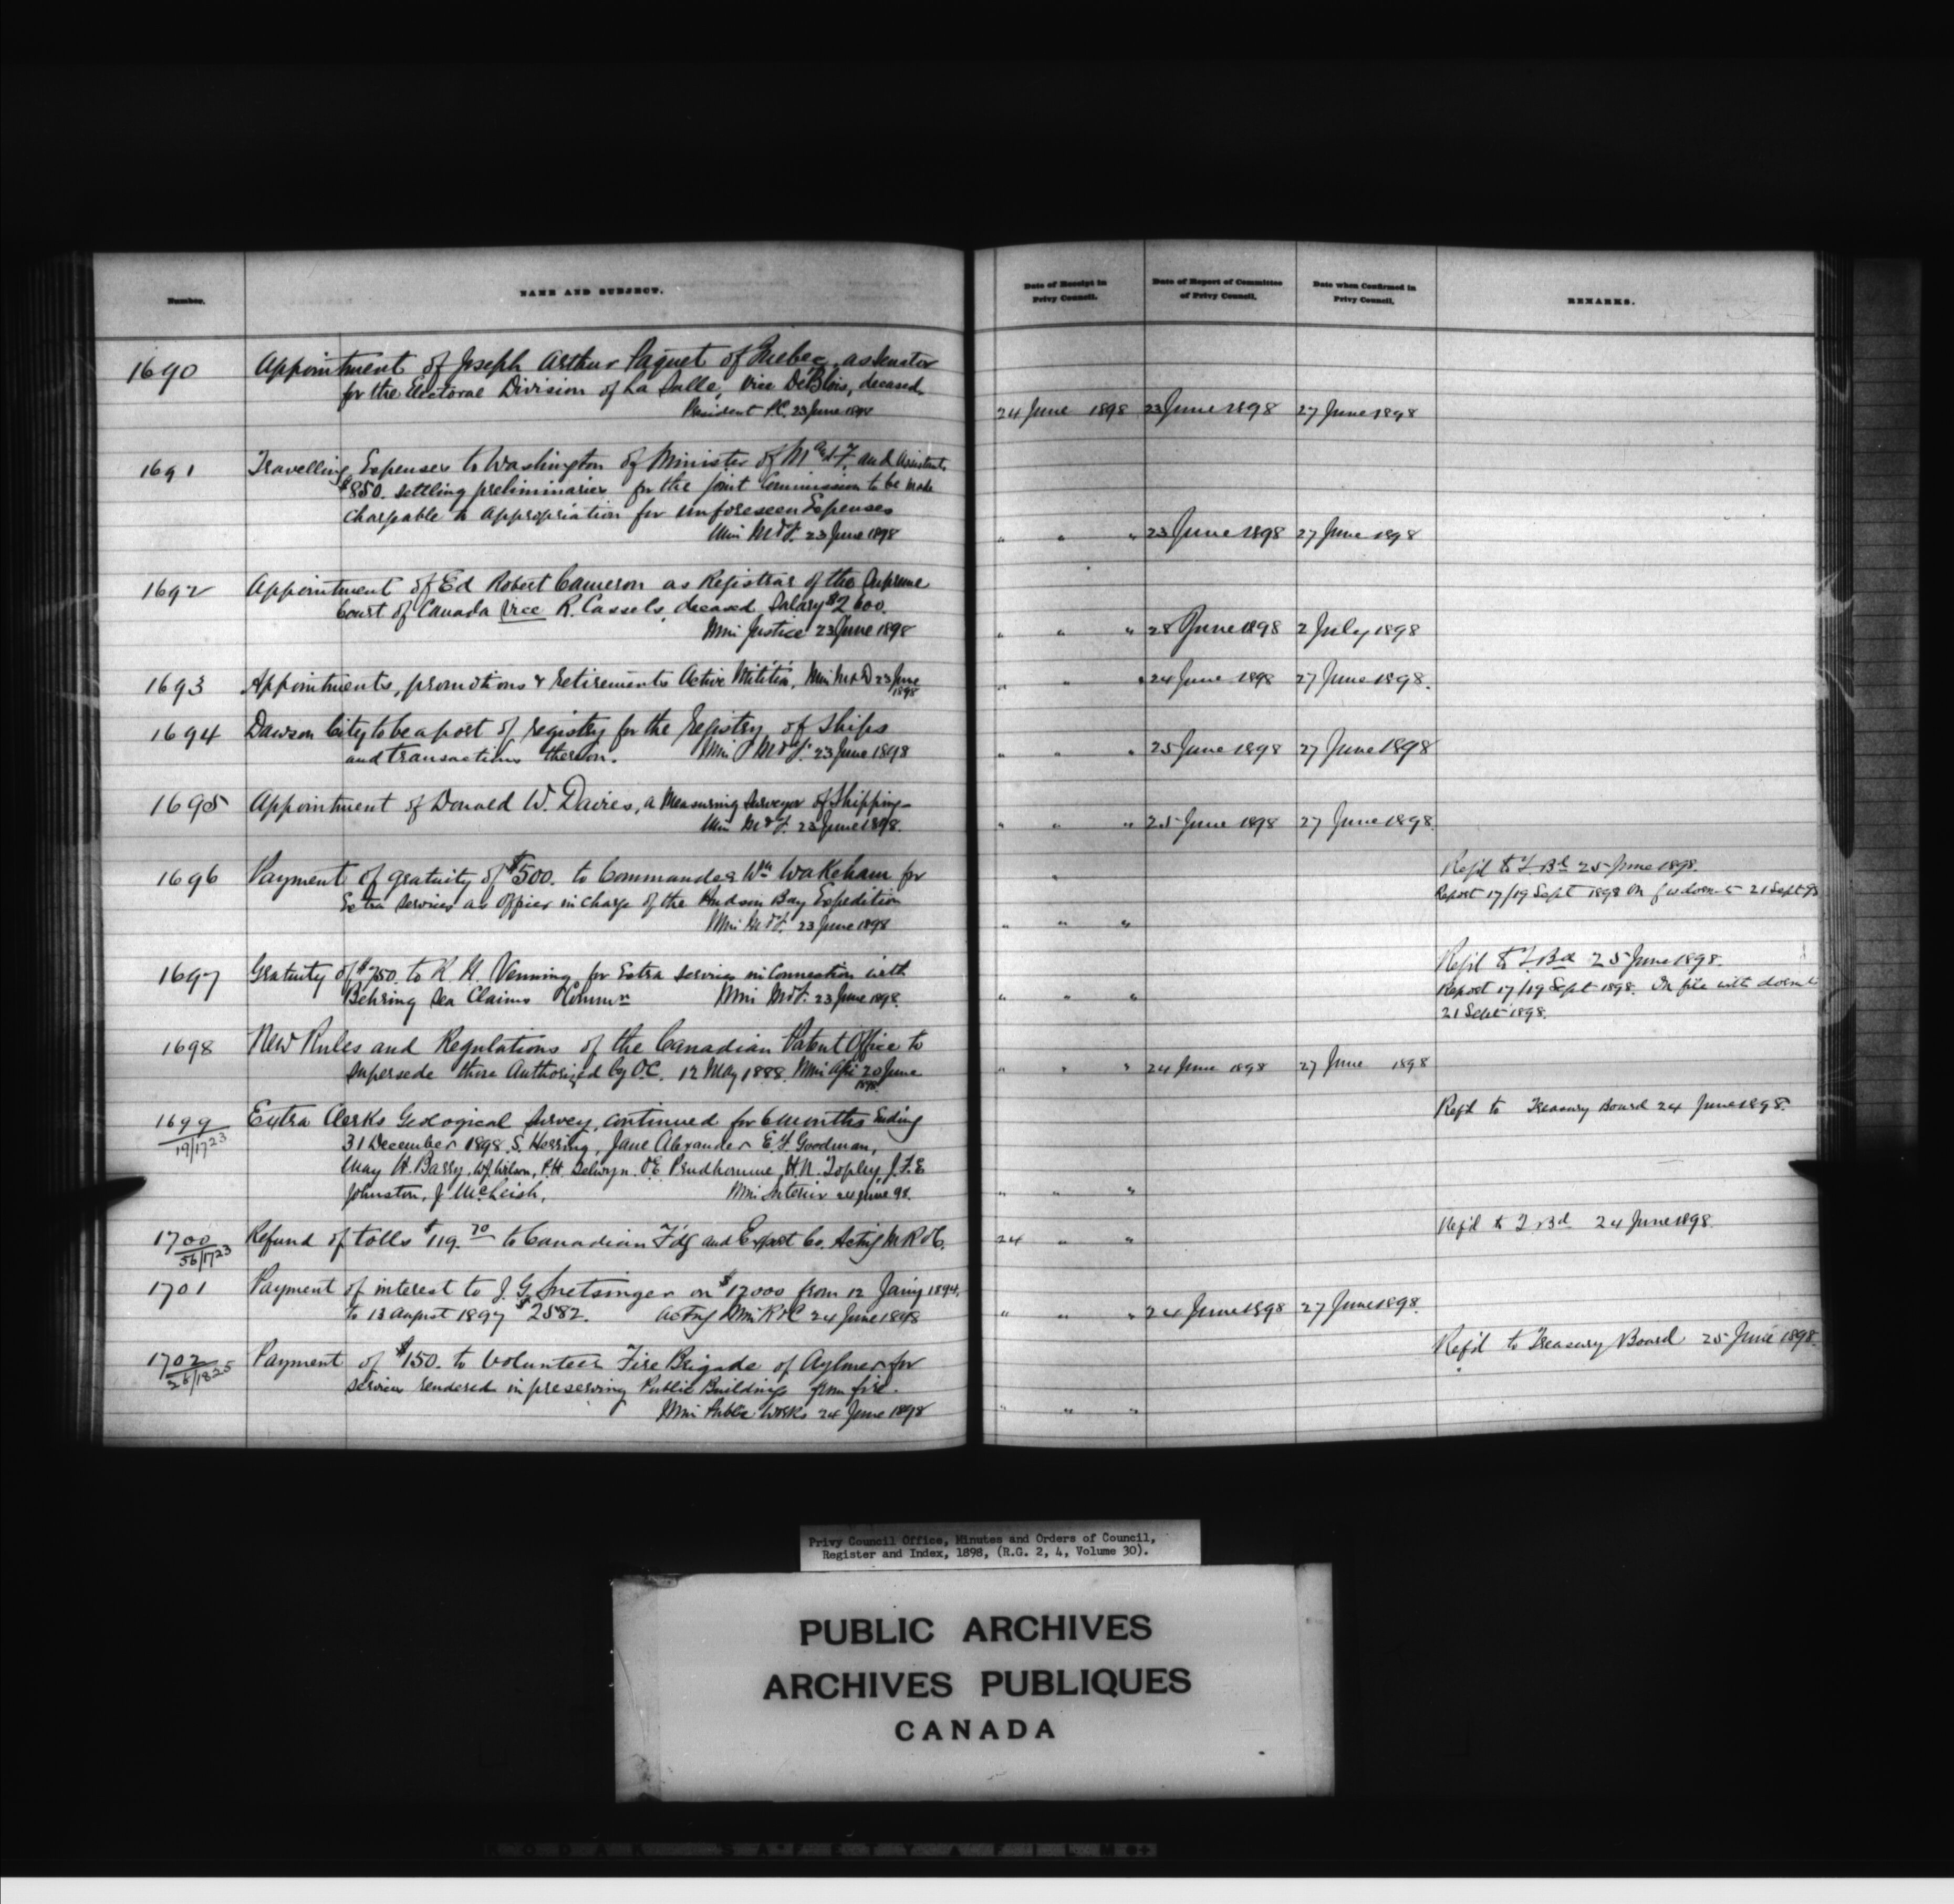 Number.
NAME AND SUBJECT.
Date of Receipt in Privy Council.
Date of Report of Committee of Privy Council.
Date when Confirmed in Privy Council.
REMARKS.
1690 Appointment of Joseph Arthur Paquet of Quebec, as Senator
for the Electoral Division of La Salle, vice DeBlois, deceased
President P.C. 23 June 1898 24 June 1898 23 June 1898 27 June 1898
1691 Travelling Expenses to Washington of Minister of M and F. and Assistants
$850. settling preliminaries for the Joint Commission to be made
chargeable to appropriation for unforeseen Expenses
Min M & F. 23 June 1898 " " " 23 June 1898 27 June 1898
1692 Appointment of Ed Robert Cameron as Registrar of the Supreme
Court of Canada vice R. Cassels, deceased, Salary $2600.
Min Justice 23 June 1898 " " " 28 June 1898 2 July 1898
1693 Appointments, promotions & retirements Active Militia, Min M & D 23 June 1898 " " " 24 June 1898 27 June 1898.
1694 Dawson City to be a port of registry for the registry of Ships
and transactions thereon. Min M & F. 23 June 1898 " " " 25 June 1898 27 June 1898
1695 Appointment of Donald W. Davies, a Measuring Surveyor of Shipping
Min M & F. 23 June 1898. " " " 25 June 1898 27 June 1898.
1696 Payment of gratuity of $500. to Commander Wm Wakeham for " Ref'd to T. Bd 25 June 1898.
Extra services as officer in charge of the Hudson Bay Expedition Report 17/19 Sept 1898 On 21 Sept 98
Min M & F. 23 June 1898 " " "
1697 Gratuity of $750. to R. N. Venning for Extra services in Connection with Ref'd to T. Bd 25 June 1898.
Behring Sea Claims Commn Min M & F. 23 June 1898. " " " Report 17/19 Sept 1898. On file with docmt
21 Sept 1898.
1698 New Rules and Regulations of the Canadian Patent Office to
supersede those Authorized by O.C. 12 May 1888. Min Agri 20 June 1898. " " " 24 June 1898 27 June 1898
1699 Extra Clerks Geological Survey, continued for 6 months Ending Ref'd to Treasury Board 24 June 1898.
19/1723 31 December 1898. S. Herring, Jane Alexander E. F. Goodman,
May H. Barry, W J Wilson, P. H. Selwyn. O E Prudhomme, H. N. Topley, J. F. E
Johnston, J McLeish, Min Interior 24 June 98. " " "
1700 Refund of tolls $119.70 to Canadian F'd'g and Export Co. Acting M R & C. 24 " " Ref'd to T. Bd. 24 June 1898.
56/1723
1701 Payment of interest to J. G. Snetsinger on $12000 from 12 Jany 1894.
to 13 August 1897 $2582. Acting Min R & C 24 June 1898 " " " 24 June 1898 27 June 1898.
1702 Payment of $150. to Volunteer Fire Brigade of Aylmer for Ref'd to Treasury Board 25 June 1898.
26/1825 services rendered in preserving Public Buildings from fire.
Min Public Works 24 June 1898 " " "
Privy Council Office, Minutes and Orders of Council,
Register and Index, 1898, (R.G. 2, 4, Volume 30).
PUBLIC ARCHIVES
ARCHIVES PUBLIQUES
CANADA